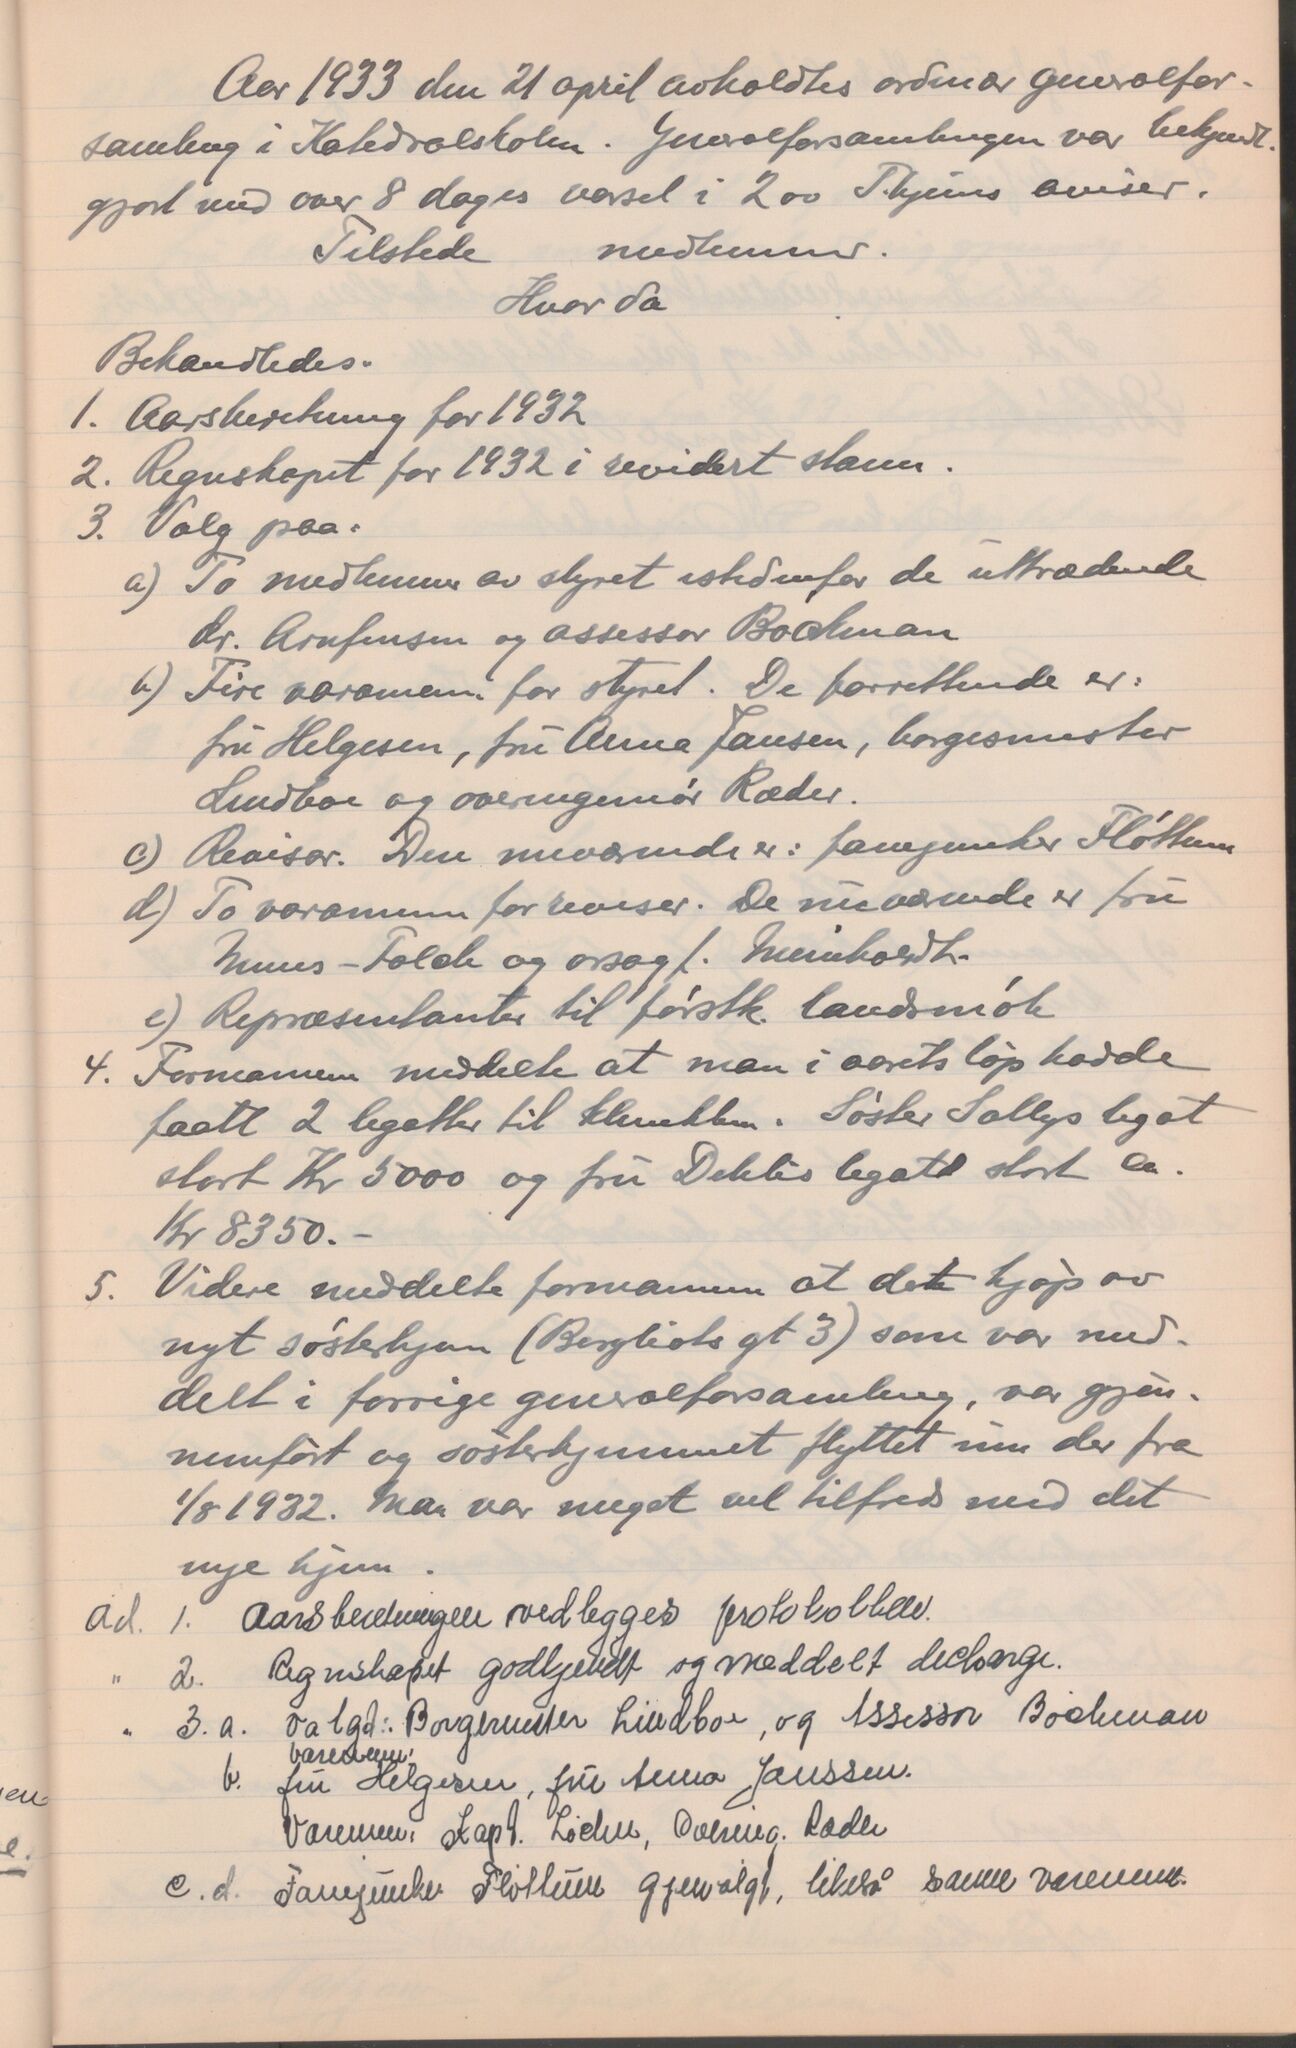 Aar 1933 den 21 april avholdtes ordinær generalfor-
samling i Katedralskolen. Generalforsamlingen var bekjendt-
gjort med over 8 dages varsel i 2 av T.hjems aviser.
Tilstede medlemmer.
Hvor da
Behandledes.
1. Aarsberetning for 1932
2. Regnskapet for 1932 i revidert stann.
3. Valg paa.
a) To medlemmer av styret istedenfor de uttrædende
dr. Arnfinsen og assessor Bockman
b) Fire varamenn for styret. De forrettende er:
fru Helgesen, fru Anna Jansen, borgesmester
Lindboe og overingeniør Ræder.
c) Revisor. Den nuværende er: fanejunker Fløttum
d) To varamenn for reviser. De nuværende er fru
Muus-Falck og orsagf. Meinhardt.
e) Repræsentanter til førstk. landsmøte
4. Formannen meddelte at man i aarets løp hadde
faatt 2 legatter til klinikken. Søster Sallys legat
stort Kr 5000 og fru Dehlis legatt stort ca.
Kr 8350.-
5. Videre meddelte formannen at det kjøp av
nyt søsterhjem (Bergliots gt 3) som var med-
delt i forrige generalforsamling, var gjen-
nemført og søsterhjemmet flyttet inn der fra
1/8 1932. Man var meget vel tilfreds med det
nye hjem.
ad. 1. Aarsberetningen vedlegges protokollen.
" 2. Regnskapet godkjendt og meddelt decharge.
" 3. a. valgt: Borgermester Lindboe, og Assessor Bockman
varamenn:
b. fru Helgesen, fru Anna Janssen.
Varamenn: Kapt. Lochen, Overing. Ræder
c. d. Fanejunker Fløttum gjenvalgt, likeså samme varamenn.
en-
e.